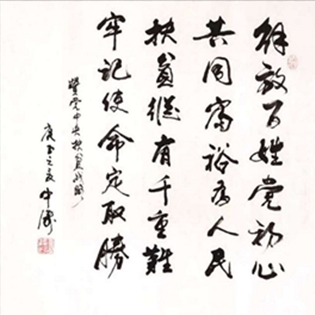 解放百姓党初心
共同富裕为人民
扶贫继有千重难
牢记使命定取胜
党中央扶贫战
庚子之夏